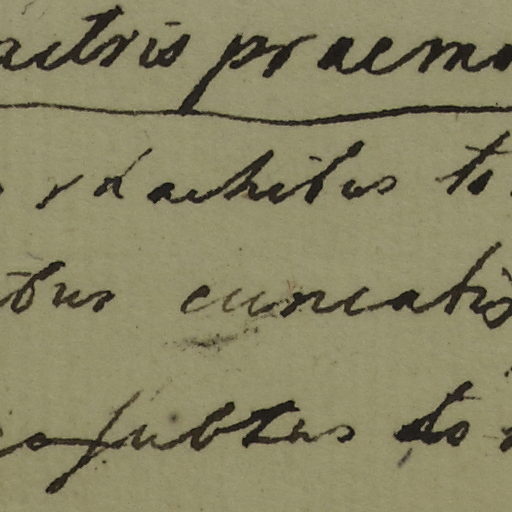 actris praemo
rhachibus to
ibus cuneatis
subtus to